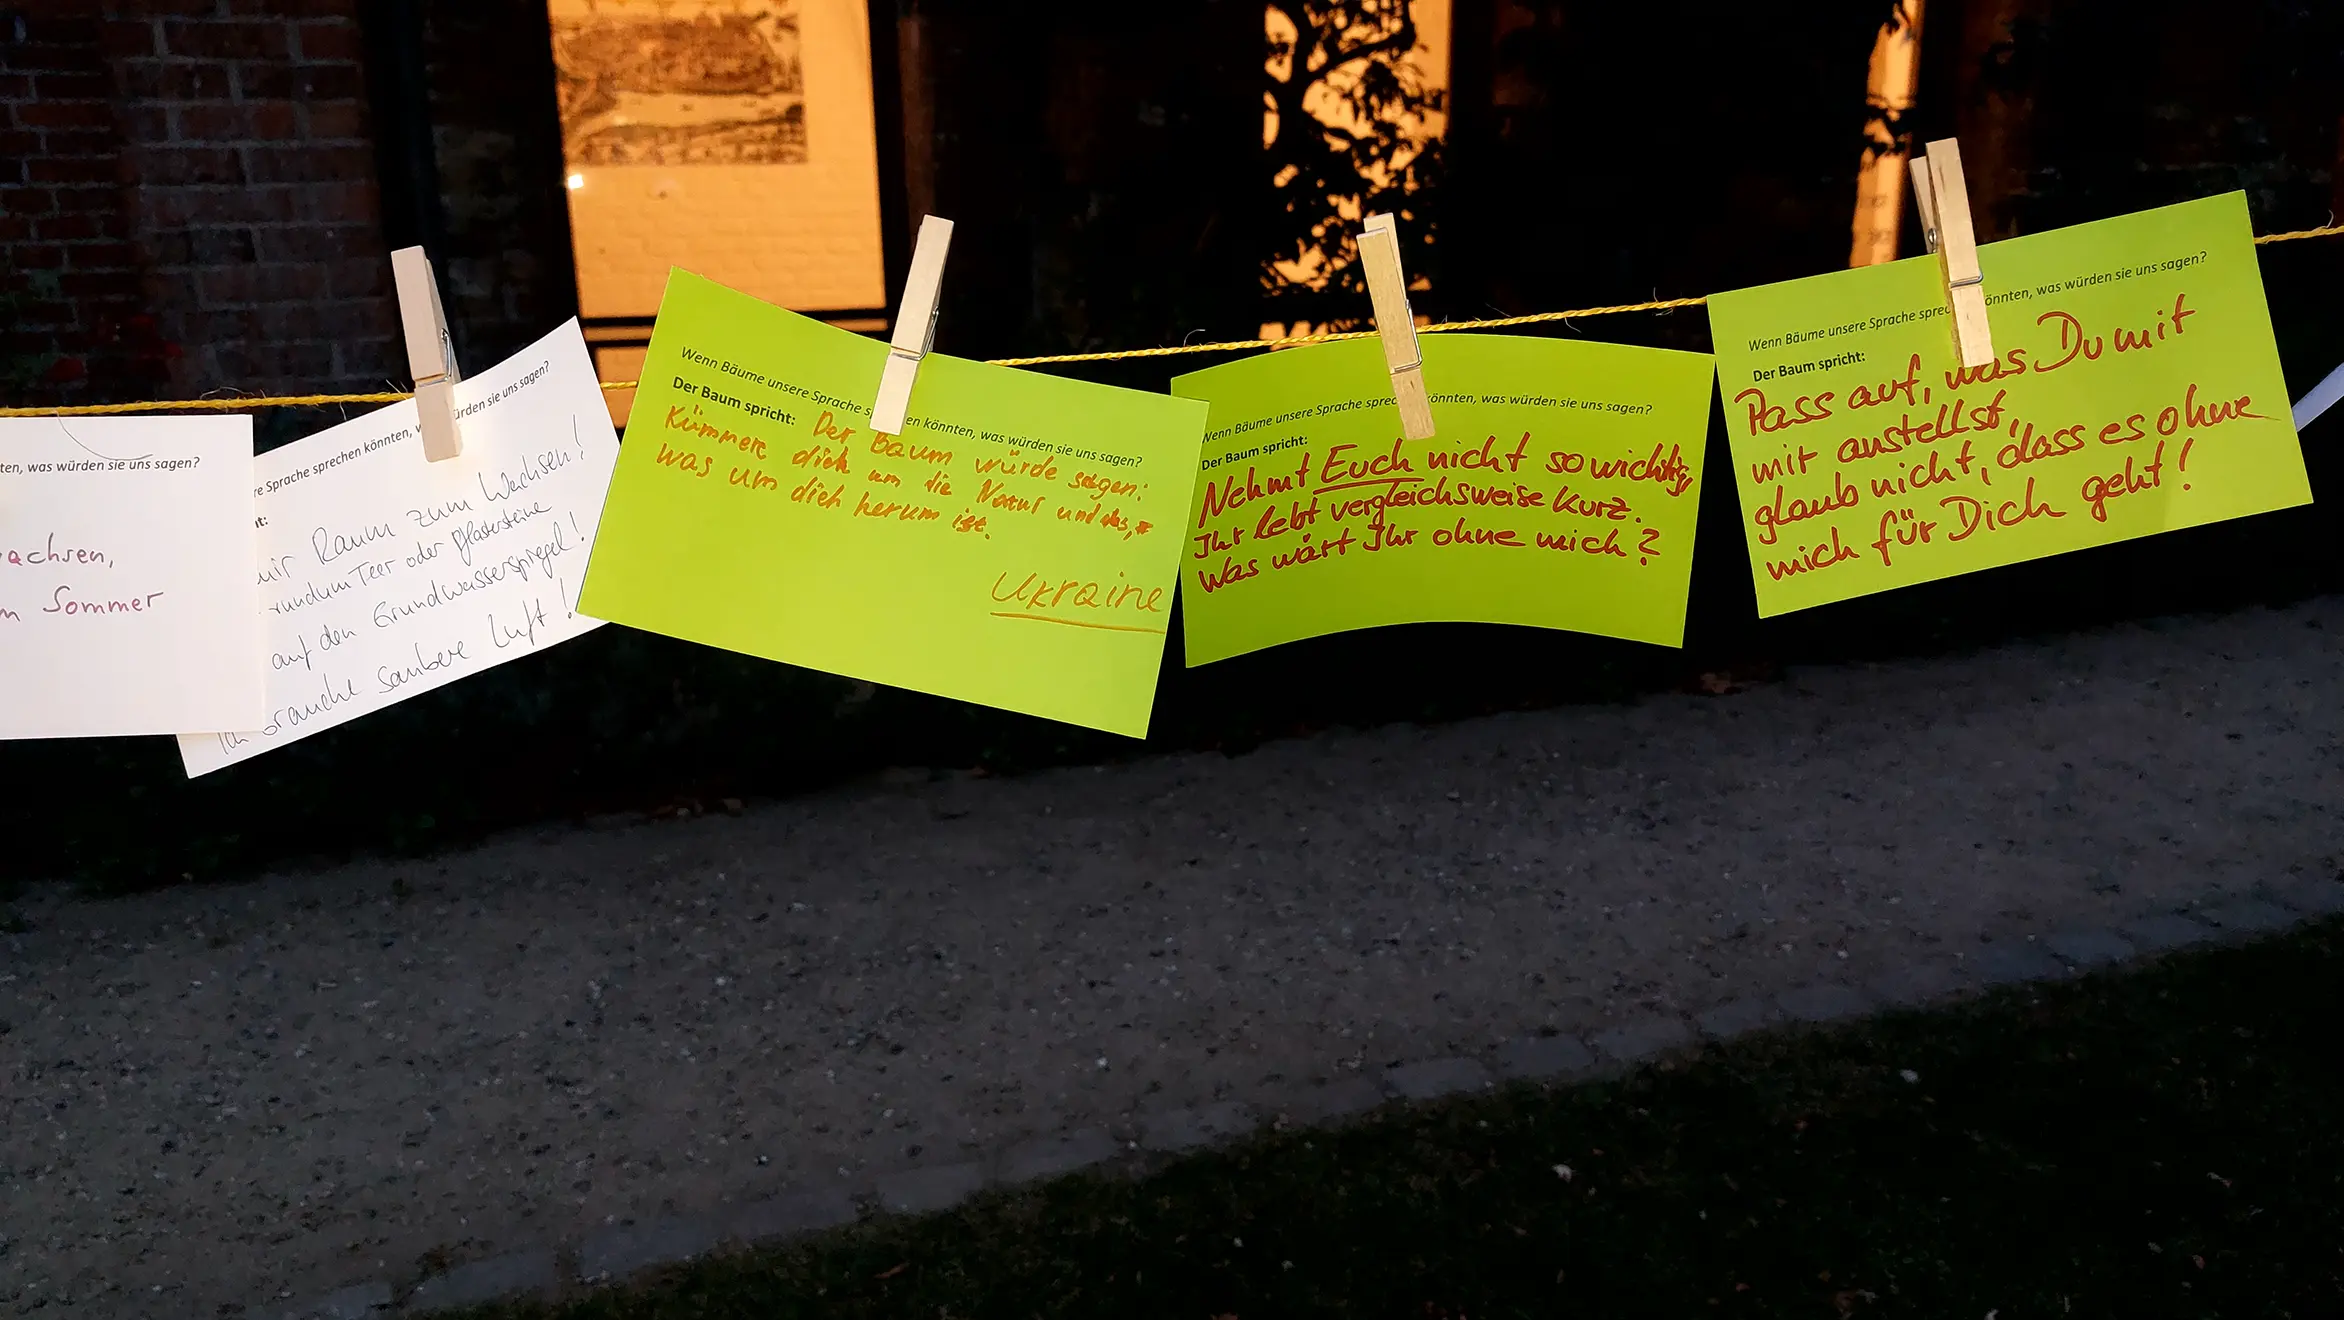 ten, was würden sie uns sagen?
achsen,
m Sommer
re Sprache sprechen könnten, w
ürden sie uns sagen?
t:
mir Raum zum Wachsen!
rundum Teer oder Pflastersteine
auf den Grundwasserspiegel!
Ich brauche saubere Luft!
Wenn Bäume unsere Sprache s
en könnten, was würden sie uns sagen?
Der Baum spricht: Der Baum würde sagen:
Kümmere dich um die Natur und das,
was um dich herum ist.
Ukraine
Wenn Bäume unsere Sprache sprec
könnten, was würden sie uns sagen?
Der Baum spricht:
Nehmt Euch nicht so wichtig,
Ihr lebt vergleichsweise kurz.
Was wärt Ihr ohne mich?
Wenn Bäume unsere Sprache sprec
önnten, was würden sie uns sagen?
Der Baum spricht:
Pass auf, was Du mit
mir anstellst,
glaub nicht, dass es ohne
mich für Dich geht!